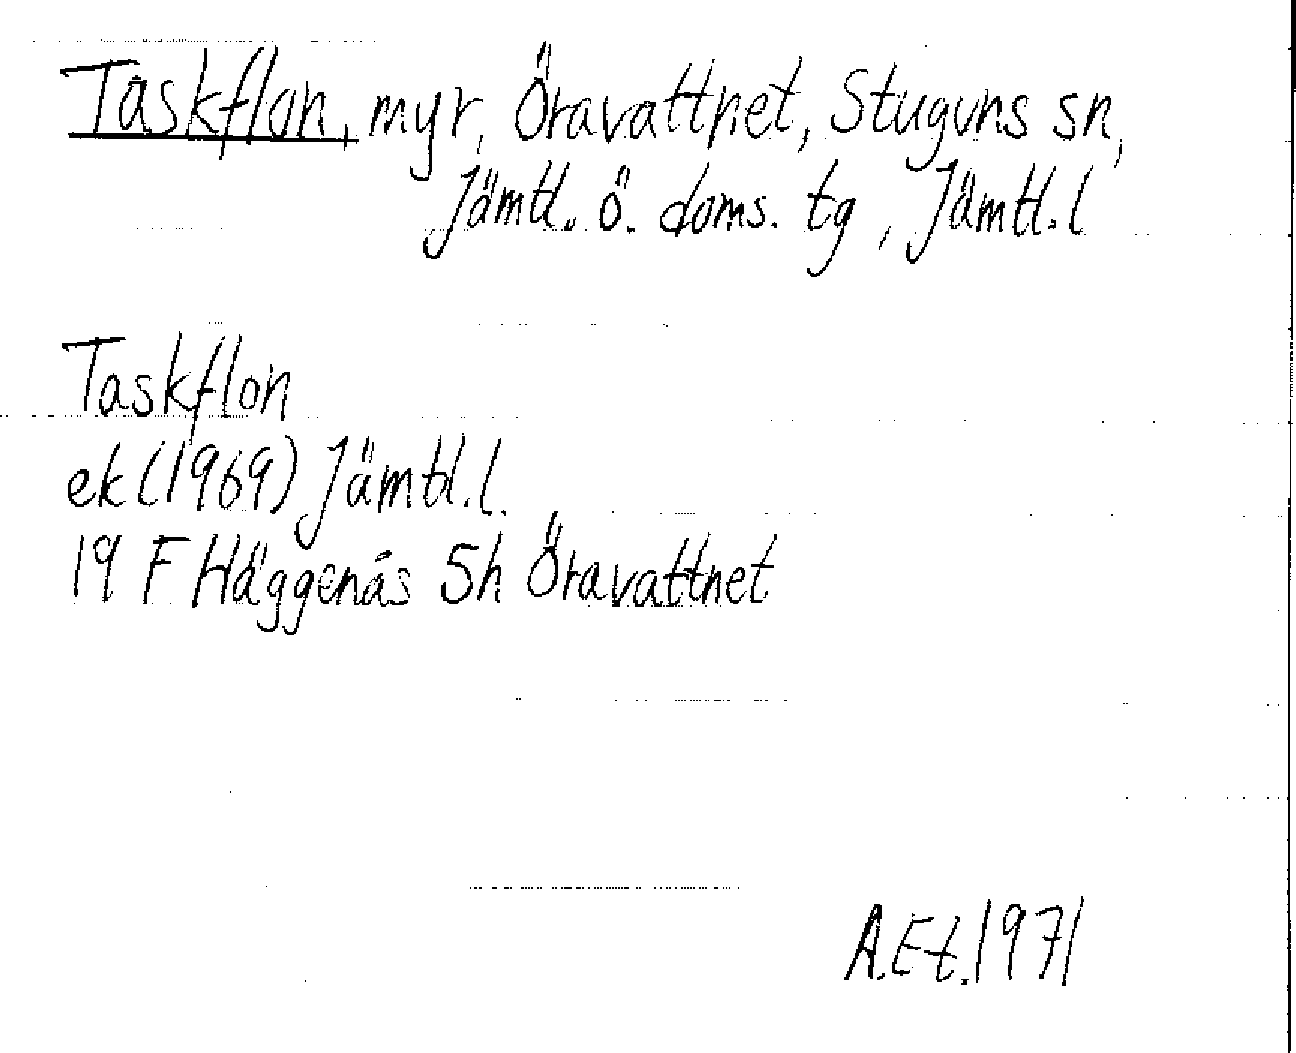 Taskflon, myr, Öravattnet, Stuguns sn,
Jämtl. ö. doms. tg, Jämtl. l
Taskflon
ek (1969) Jämtl. l.
19 F Häggenås 5h Öravattnet
A.Et. 1971